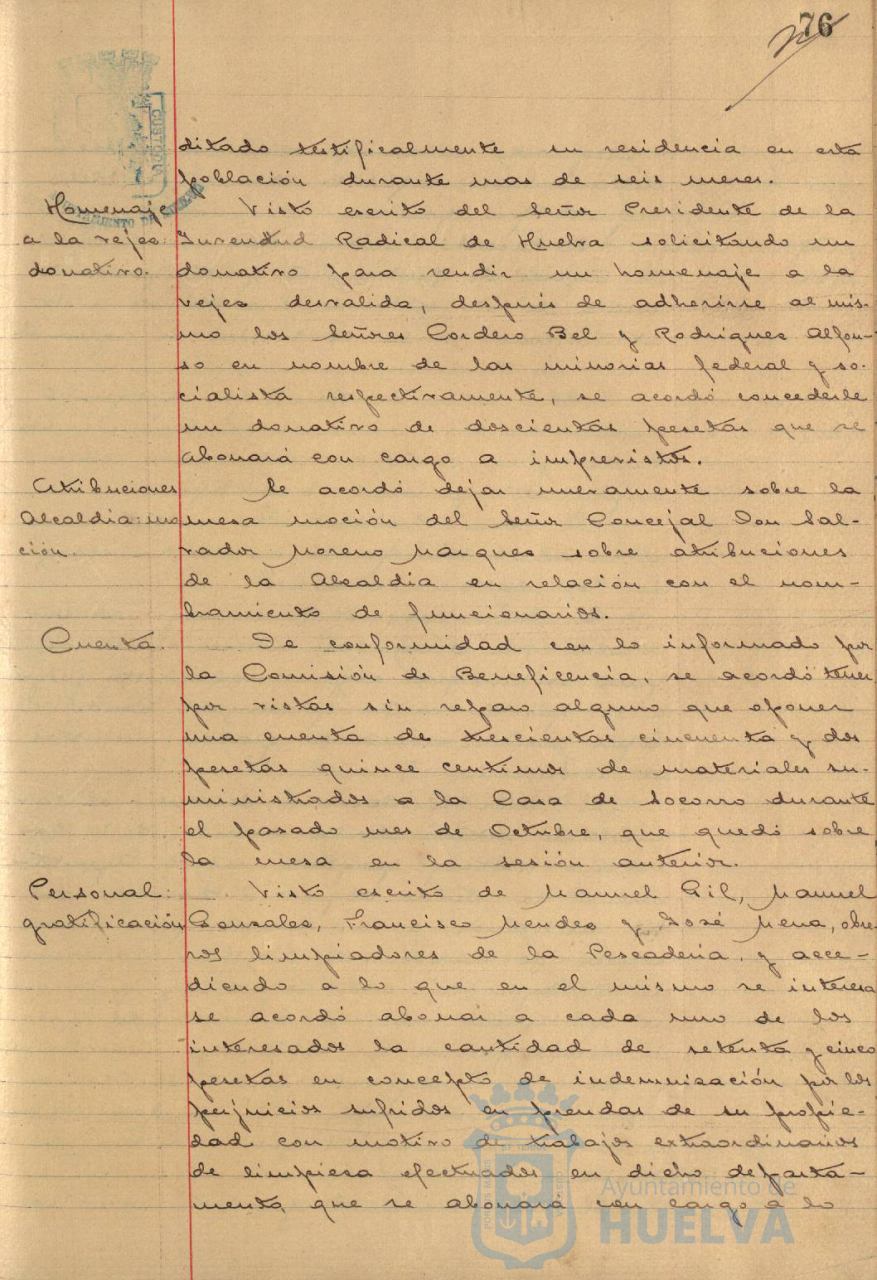 76
ditado testificalmente su residencia en esta
población durante mas de seis meses.
Homenaje
a la vejes:
donativo.
Visto escrito del Señor Presidente de la
Juventud Radical de Huelva solicitando un
donativo para rendir un homenaje a la
vejes desvalida, después de adherirse al mis-
mo los Señores Cordero Bel y Rodrigues Alfon-
so en nombre de las minorias federal y so-
cialista respectivamente, se acordó concederle
un donativo de doscientas pesetas que se
abonará con cargo a imprevistos.
Atribuciones
Alcaldia: mo
ción.
Se acordó dejar nuevamente sobre la
mesa moción del Señor Concejal Don Sal-
vador Moreno Marques sobre atribuciones
de la Alcaldia en relación con el nom-
bramiento de funcionarios.
Cuenta.
De conformidad con lo informado por
la Comisión de Beneficencia, se acordó tener
por vistas sin reparo alguno que oponer
una cuenta de trescientas cincuenta y dos
pesetas quince centimos de materiales su-
ministrados a la Casa de Socorro durante
el pasado mes de Octubre, que quedó sobre
la mesa en la sesión anterior.
Personal:
gratificación
Visto escrito de Manuel Gil, Manuel
Gonsales, Francisco Mendes y José Mena, obre-
ros limpiadores de la Pescaderia, y acce-
diendo a lo que en el mismo se interesa
se acordó abonar a cada uno de los
interesados la cantidad de setenta y cinco
pesetas en concepto de indemnisación por los
perjuicios sufridos en prendas de su propie-
dad con motivo de trabajos extraordinarios
de limpiesa efectuados en dicho departa-
mento, que se abonará con cargo a lo
Ayuntamiento de
HUELVA